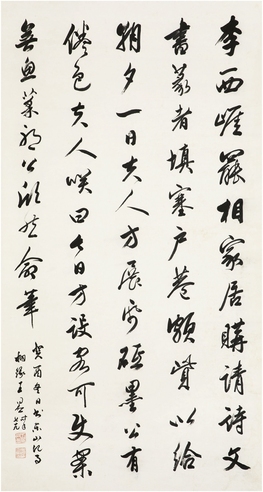 李西崖罷相家居購請詩文
書篆者填塞戶巷頗資以給
朝夕一日夫人方展紙硯墨公有
倦色夫人笑曰今日方設客可使案
無魚菜耶公欣然命筆
癸酉冬日書